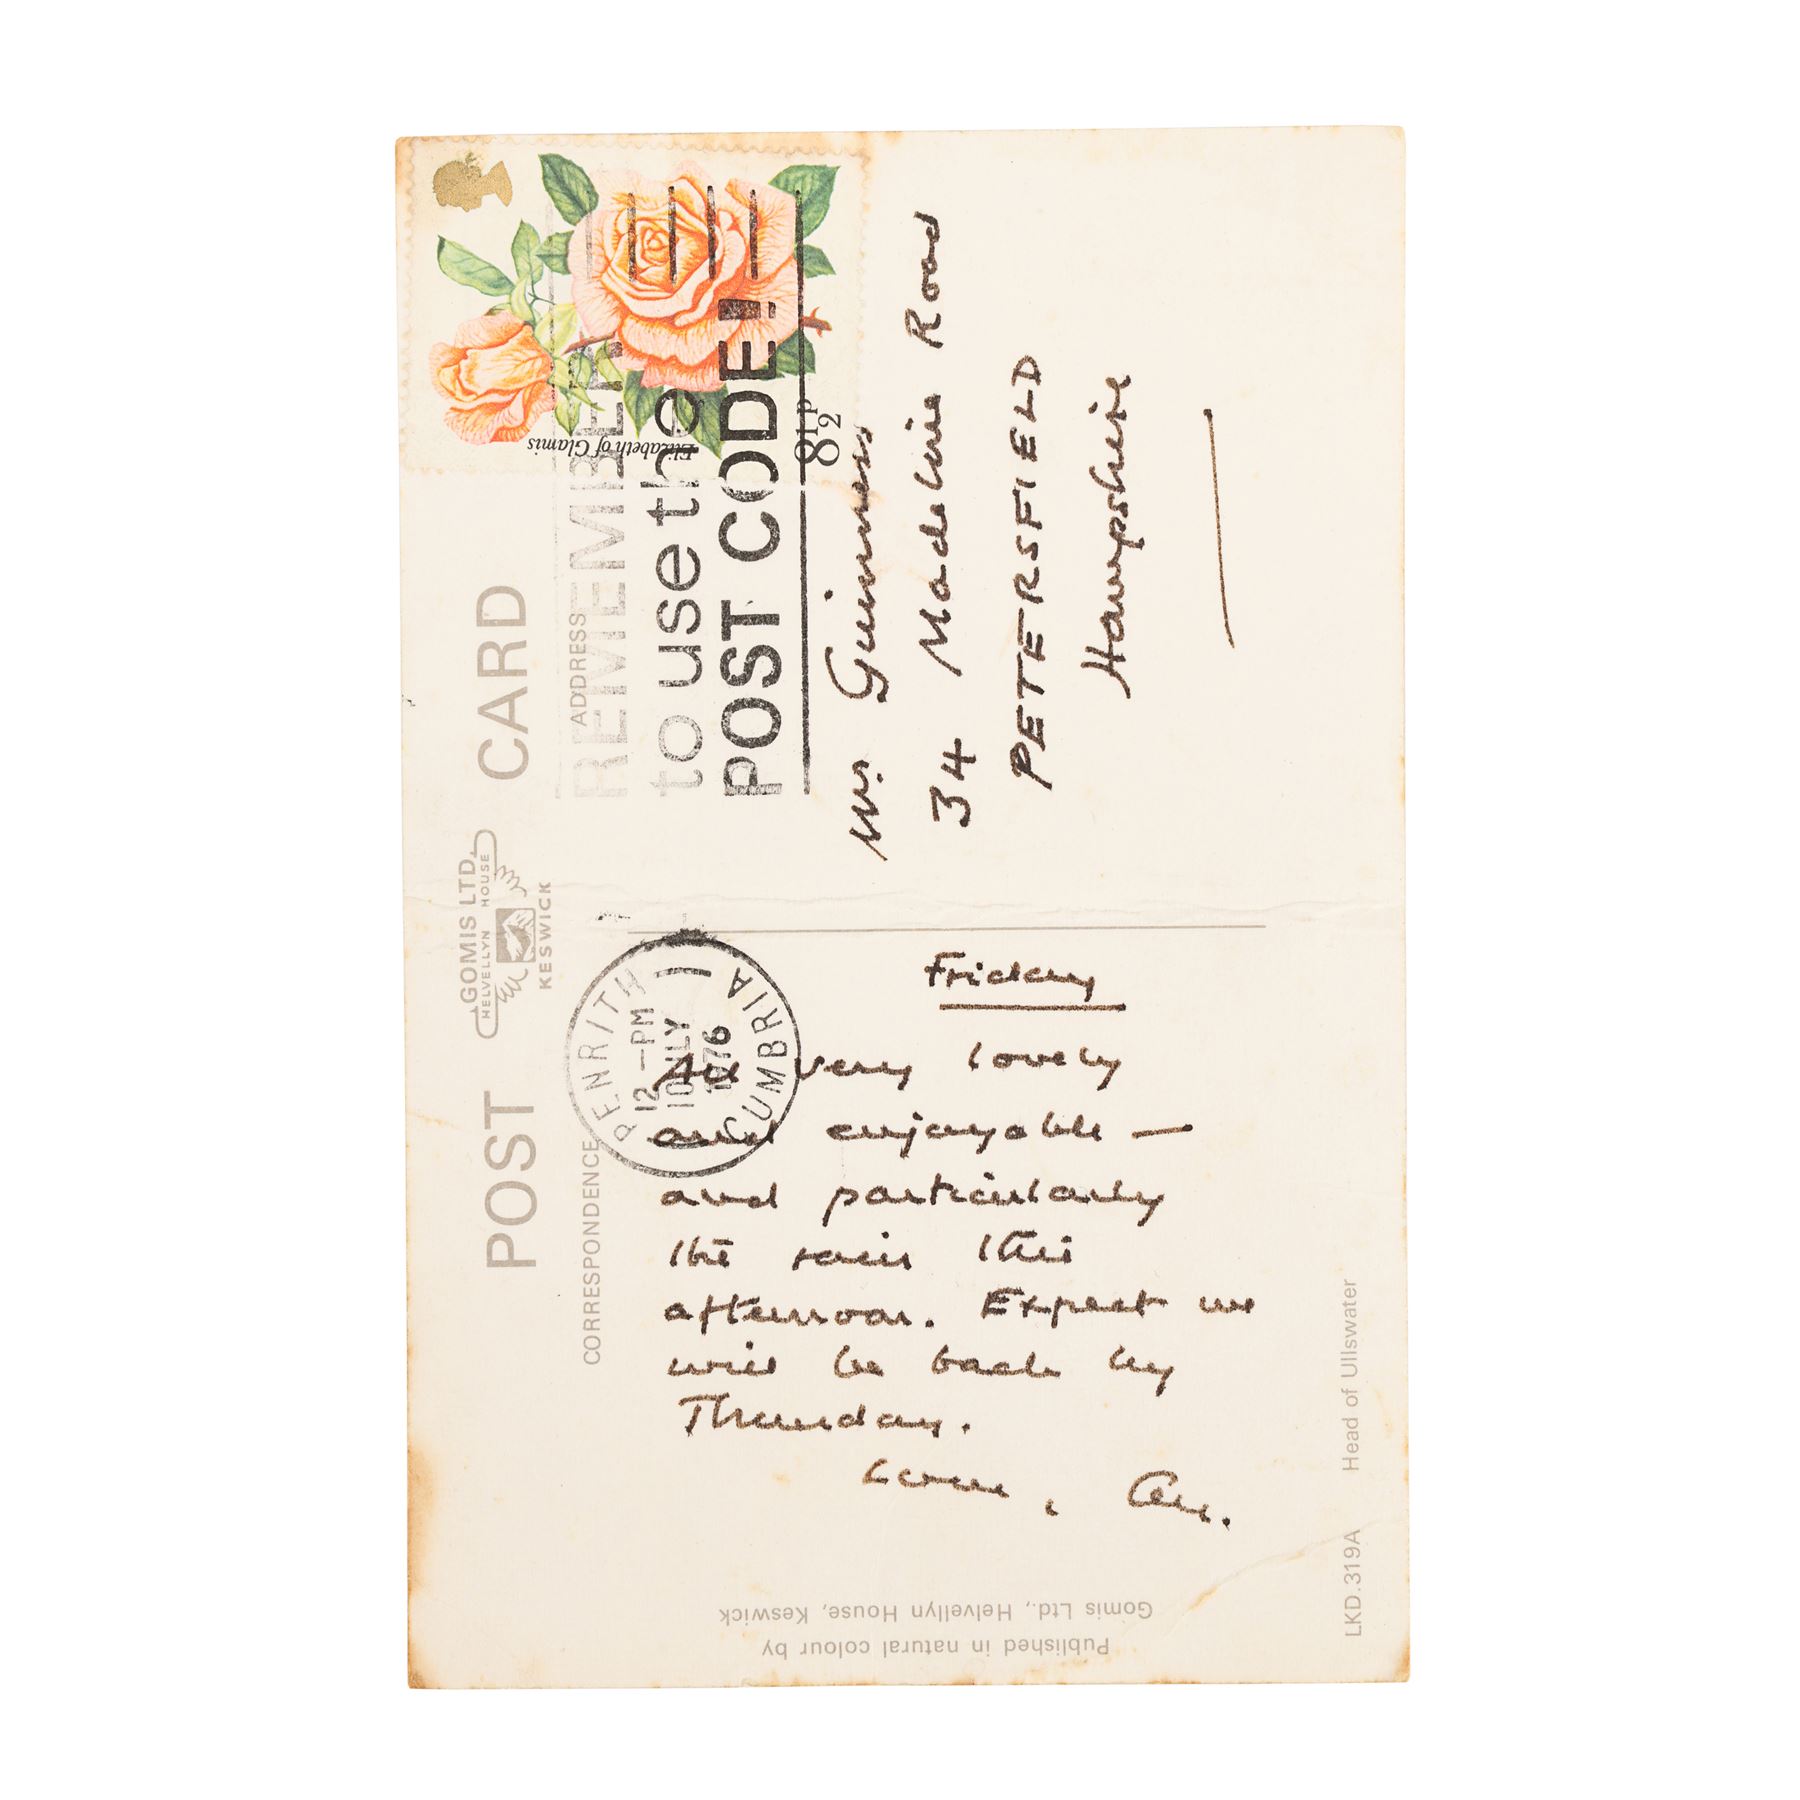 POST CARD
GOMIS LTD.
HELVELLYN HOUSE
KESWICK
CORRESPONDENCE
ADDRESS
Elizabeth of Glamis
8½P
REMEMBER
to use the
POST CODE!
PENRITH
12 - PM
10 JLY
1976
CUMBRIA
Friday
All very lovely
and enjoyable —
and particularly
the rain this
afternoon. Expect we
will be back by
Thursday.
Love,
34 Madeline Road
PETERSFIELD
Hampshire
Published in natural colour by
Gomis Ltd., Helvellyn House, Keswick
LKD.319A Head of Ullswater